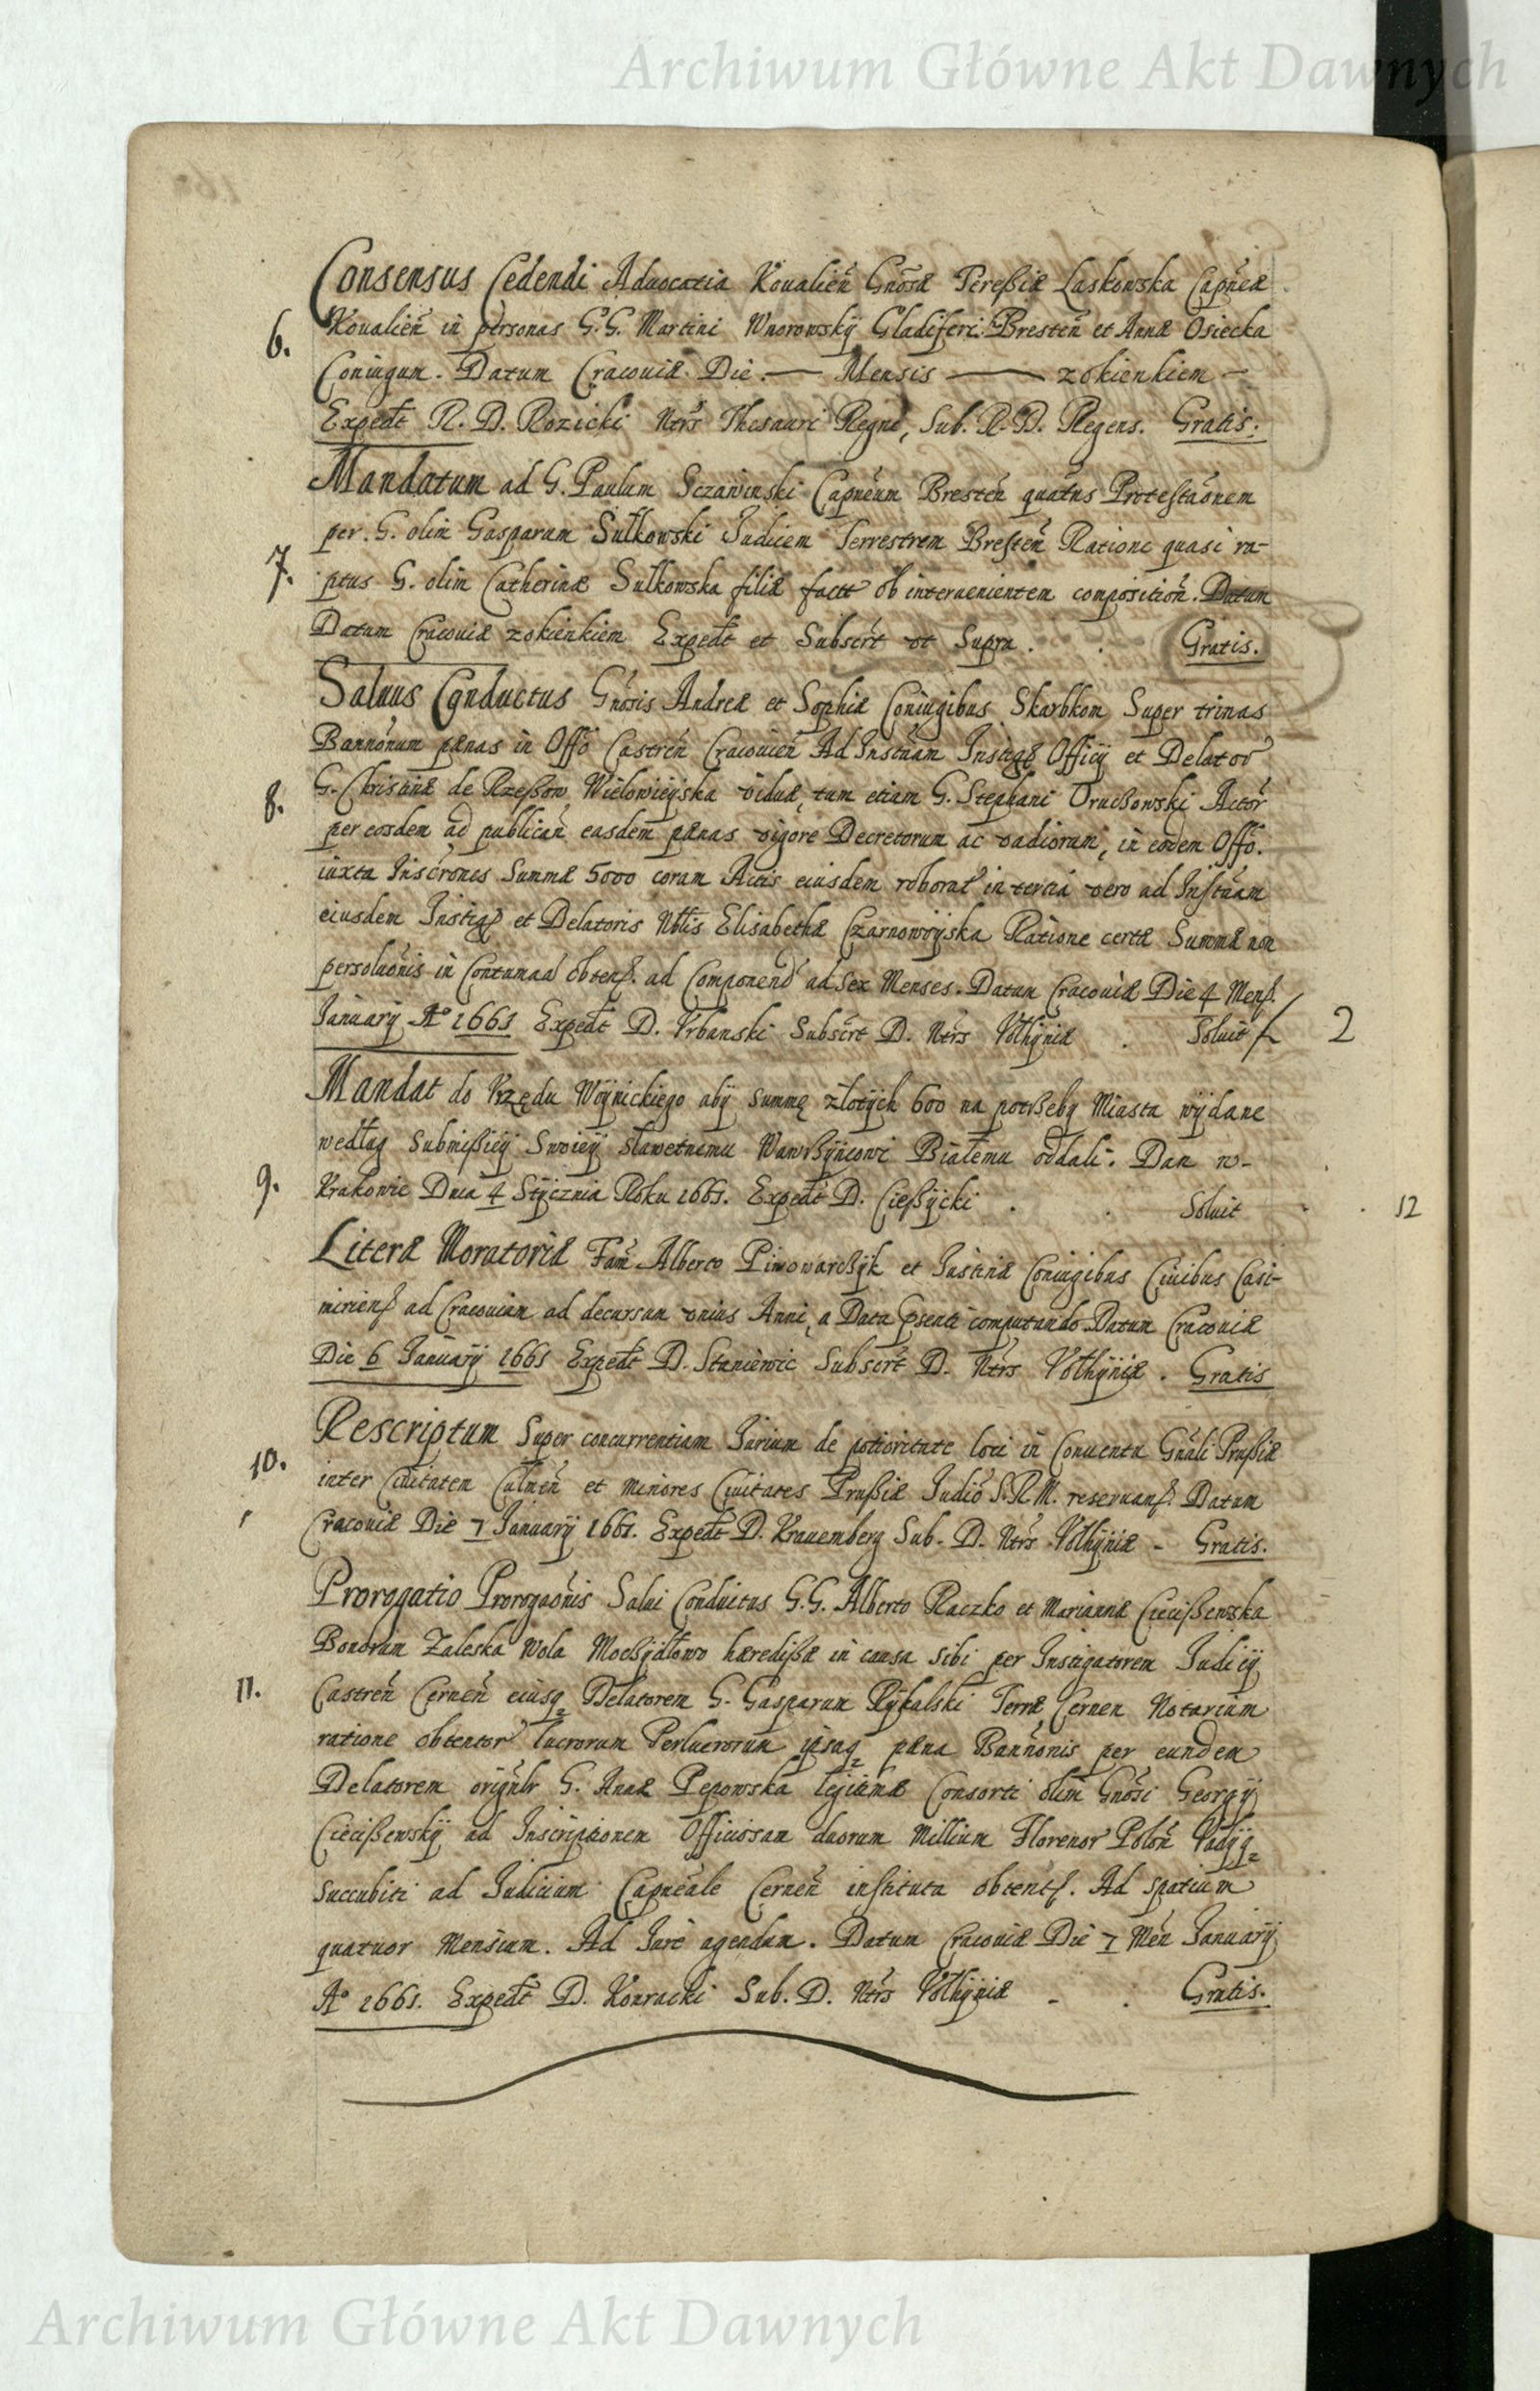 Archiwum Główne Akt Dawnych
Consensus Cedendi Aduocatia Koualien̄ Gnōsæ Pereßiæ Laskowska Capn̄eæ
6. Koualien̄ in personas G.G. Martini Wnorowskÿ Gladiferi Bresten̄ et Annæ Osiecka
Coniugum. Datum Cracouiæ Die — Mensis — zokienkiem —
Exped̄t R. D. Rozicki Ntr̄s Thesauri Regni, Sub. R. D. Regens. Gratis.
Mandatum ad G. Paulum Sczawinski Capn̄eum Bresten̄ quat̄nus Protestāonem
per G. olim Gasparum Sułkowski Judicem Terrestrem Bresten̄ Ratione quasi ra-
7. ptus G. olim Catherinæ Sułkowska filiæ fact̄ ob interuenientem composition̄. Datum
Datum Cracouiæ zokienkiem Exped̄t et Subscr̄t vt Supra. Gratis.
Saluus Conductus Gnōsis Andreæ et Sophiæ Coniugibus Skarbkom Super trinas
Bannōnum pænas in Offō Castren̄ Cracouien̄ Ad Instn̄am Instigs Officÿ et Delator
8. G. Chrisānæ de Rzeßow Wielowieÿska viduæ, tum etiam G. Stephani Orußowski Actōr
per eosdem ad publican̄ easdem pænas vigore Decretorum ac vadiorum, in eodem Offō.
iuxta Inscrōnes Summæ 5000 coram Actis eiusdem roborat in tertiá vero ad Instn̄am
eiusdem Instigs et Delatoris Nb̄lis Elisabethæ Czarnowÿska Ratione certæ Summæ non
persoluōnis in Contumaa obtens. ad Componend ad Sex Menses. Datum Cracouiæ Die 4 Mens.
Januarÿ A° 1661 Exped̄t D. Vrbanski Subscr̄t D. Ntr̄s Volhÿniæ . Soluit 2
Mandat do Vrzędu Woÿnickiego abÿ Summę złotÿch 600 na potrßebÿ Miasta wÿdane
wedlag Submißieÿ Swoieÿ Sławetnemu Wawrßÿncowi Białemu oddali. Dan w-
9. Krakowie Dnia 4 Stÿcznia Roku 1661. Exped̄t D. Cießÿcki . . Soluit . . 12
Literæ Moratoriæ Fam̄ Alberto Piwowarcßÿk et Justinæ Coniugibus Ciuibus Casi-
miriens ad Cracouiam ad decursum vnius Anni, a Data Psenti computando. Datum Cracouiæ
Die 6 Januarÿ 1661 Exped̄t D. Staniewic Subscr̄t D. Ntr̄s Volhÿniæ . Gratis
Rescriptum Super concurrentiam Jurium de potioritate loci in Conuentu Gn̄ali Prußiæ
10. inter Ciuitatem Culmen̄ et minores Ciuitates Prußiæ Judiō S.R.M. reseruans. Datum
Cracouiæ Die 7 Januarÿ 1661. Exped̄t D. Krauemberg Sub. D. Ntr̄s Volhÿniæ - Gratis.
Prorogatio Prorogaōnis Salui Conductus G.G. Alberto Raczko et Mariannæ Ciecißewska
Bonorum Zaleska Wola Mocßÿdłowo hæredißæ in causa Sibi per Instigatorem Judicÿ
11. Castren̄ Cernen̄ eiusq; Delatorem G. Gasparum Rÿkalski Terræ Cernen Notarium
ratione obtentor lucrorum Perlucrorum ipsaq; pæna Bannōnis per eundem
Delatorem orign̄lr G. Annæ Pepowska legitimæ Consorti olim Gnōsi Georgÿ
Ciecißewskÿ ad Inscriptionem Officiosam duorum Millium Florenor Polon̄ Vadÿq;
Succubiti ad Judicium Capneāle Cernen̄ instituta obtents. Ad spatium
quatuor Mensium. Ad Jure agendum. Datum Cracouiæ Die 7 Men̄ Januarÿ
A° 1661. Exped̄t D. Konracki Sub. D. Ntr̄s Volhÿniæ - . Gratis.
Archiwum Główne Akt Dawnych